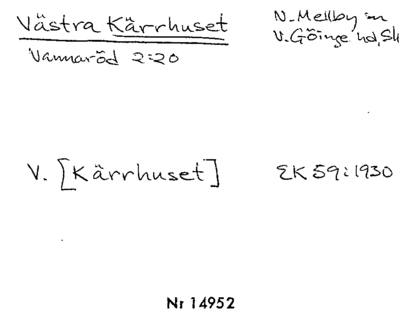 Västra Kärrhuset
Vannaröd 2:20
N. Mellby sn
V. Göinge hd, Sk
V. [Kärrhuset]
EK 59:1930
Nr 14952